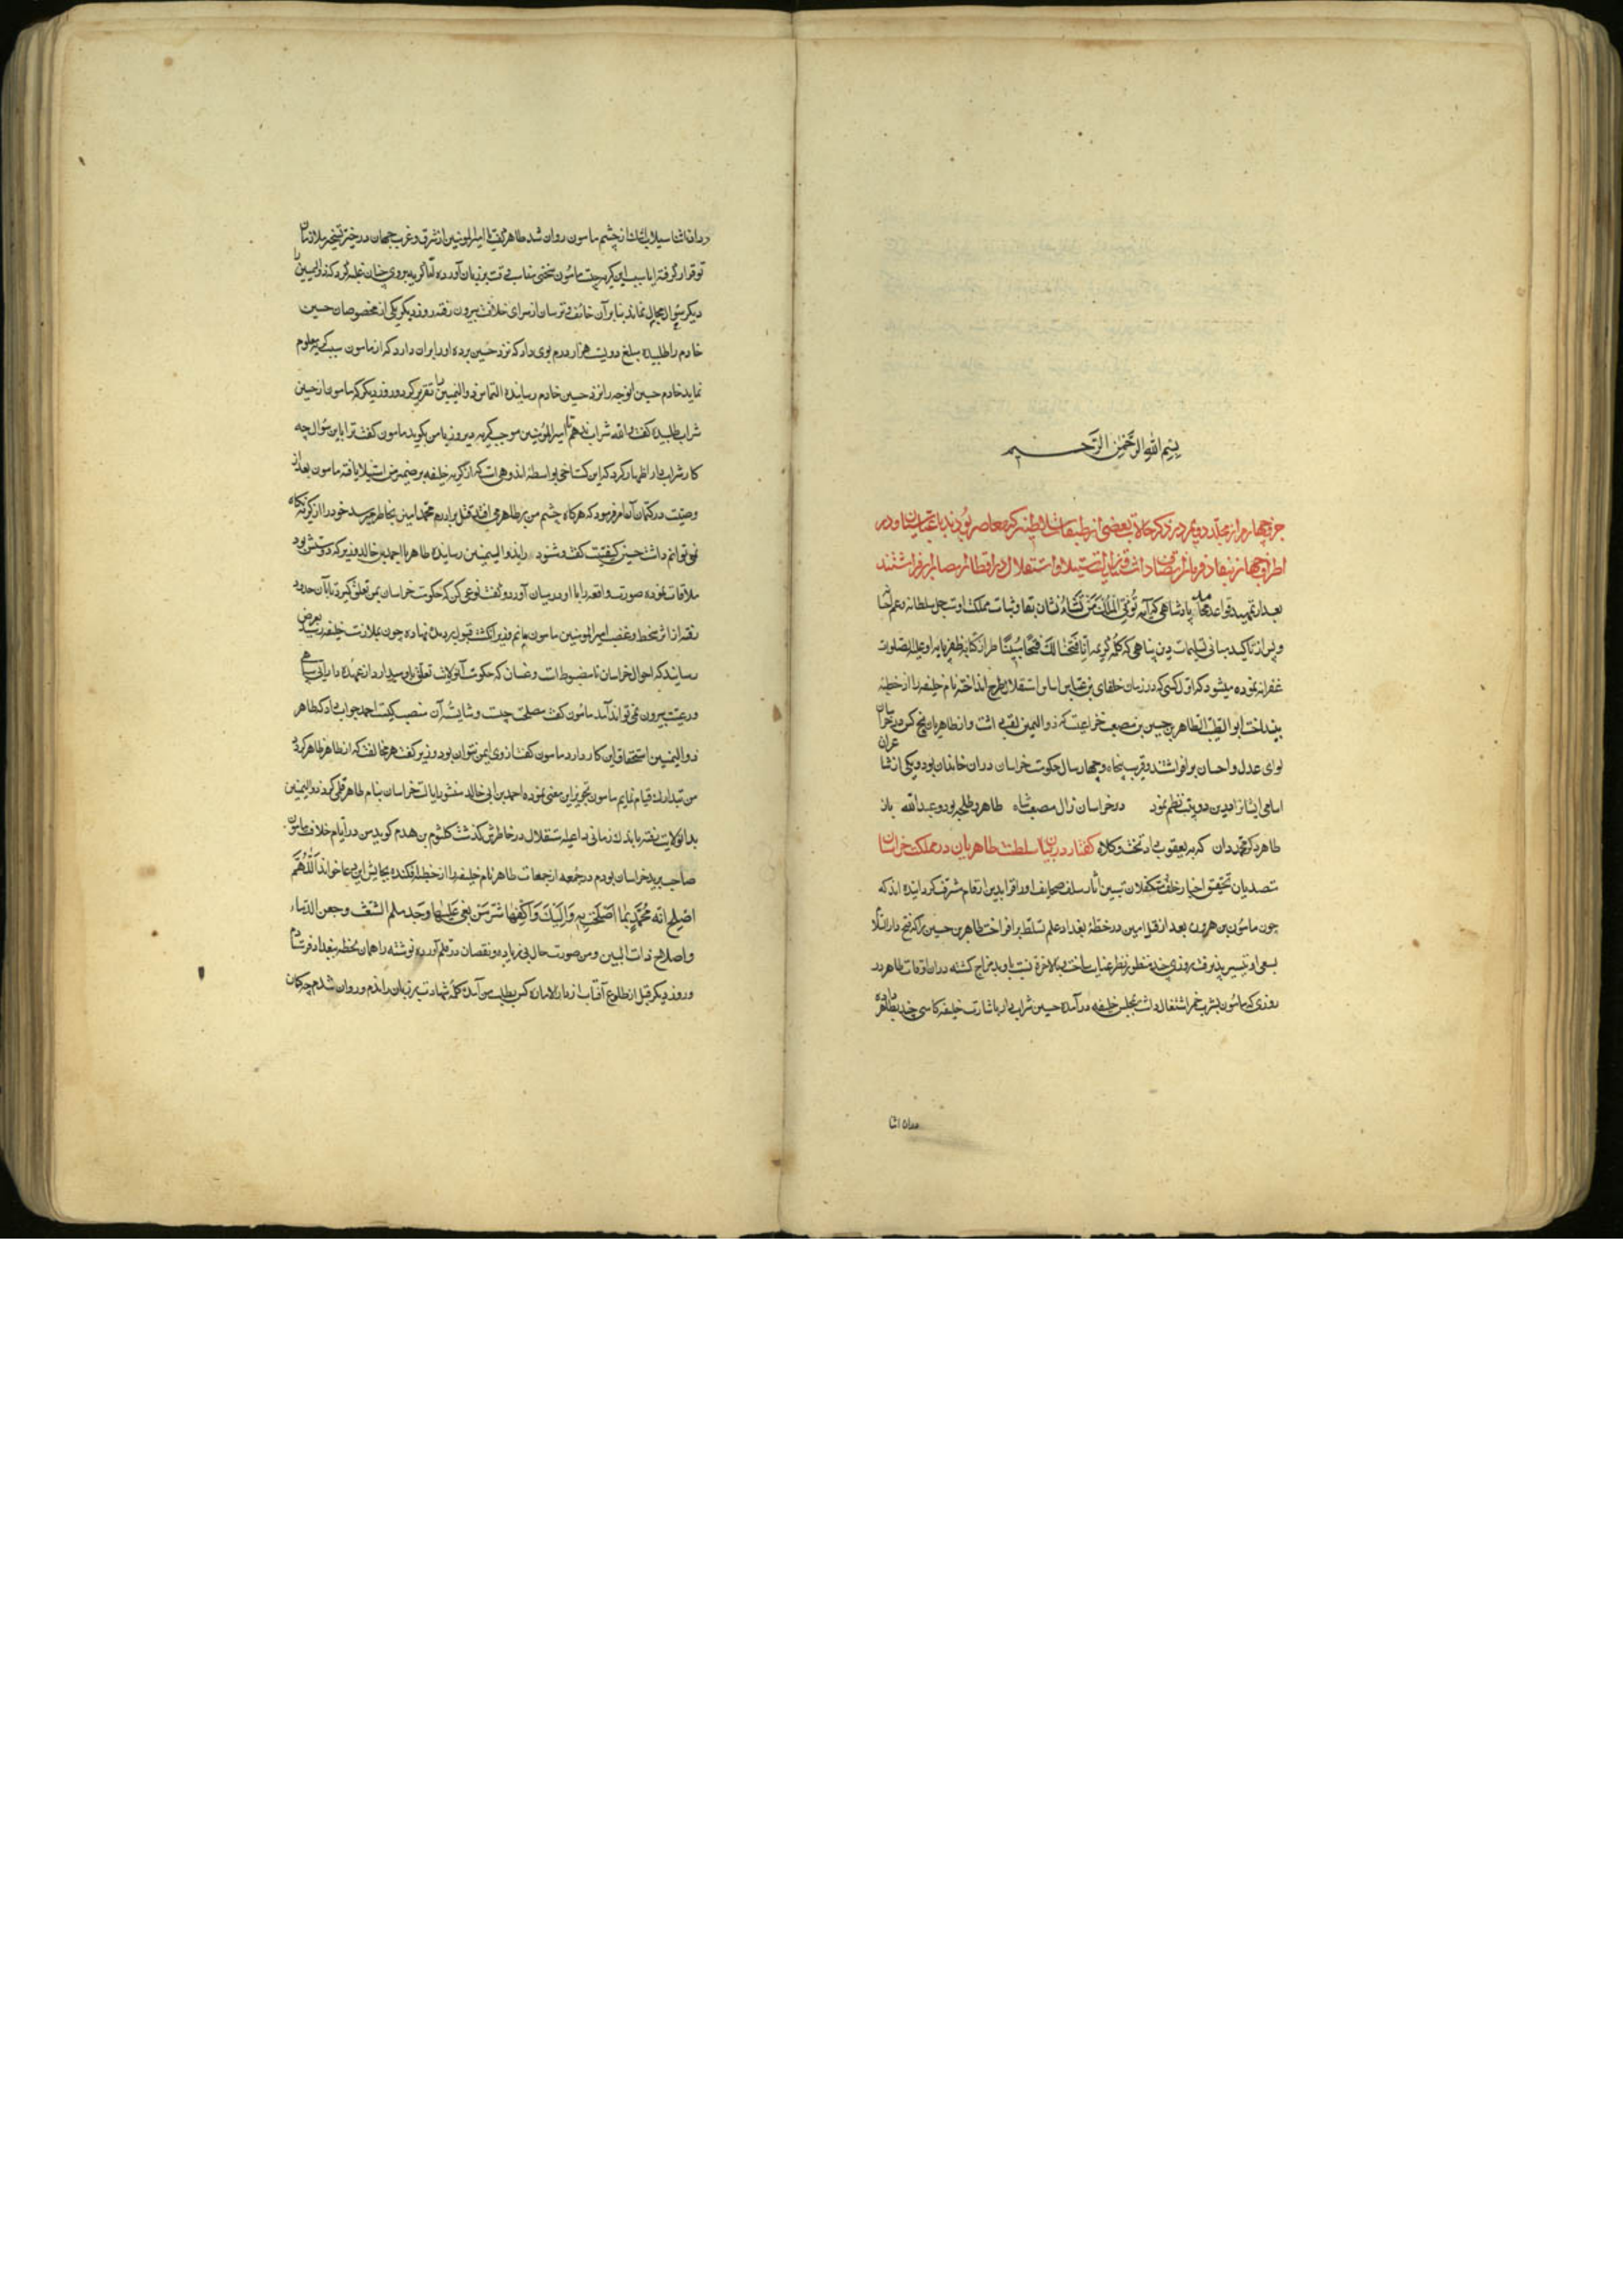 بسم الله الرحمن الرحیم
جزو چهارم از مجلد دویم در ذکر حالات بعضی از طبقات سلاطین که معاصر بودند با عباسیان و در
اطراف جهان نفاذ فرمان داشتند و رایت استیلا و استقلال در اقطار امصار بر افراشتند
بعد از تمهید قواعد محامد پادشاهی که آیه تؤتی الملک من تشاء نشان بقا و ثبات مملکت اوست جل سلطانه و عم
و پس از تاکید مبانی تسلیمات دین پناهی که کلمه کریمه انا فتحنا لک فتحا مبینا طراز کتابه ظفر رایه او علیه الصلوات
نموده میشود که اول کسی که در زمان خلفای بنی عباس اساس استقلال طرح انداخته نام خلیفه را از خطبه
بینداخت ابو الطیب الطاهر بن حسین بن مصعب خزاعیست که ذو الیمینین لقب داشت و از طاهریان پنج کس در خراسان
لوای عدل و احسان بر افراشتند و قریب پنجاه و چهار سال حکومت خراسان در ان خاندان بود و یکی از شاعران
اسامی ایشانرا درین دو بیت نظم نمود در خراسان زال مصعب شاه طاهر و طلحه بود و عبدالله باز
طاهر دگر محمد دان که به یعقوب داد تخت و کلاه گفتار در بیان سلطنت طاهریان در مملکت خراسان
متصدیان تحقیق اخبار خلف و متکفلان تبیین آثار سلف صحایف اوراق را بدین ارقام مشرف گردانیده اند که
چون مامون بن هرون بعد از قتل امین در خطه بغداد علم تسلط بر افراخت طاهر بن حسین را که فتح دار السلام
بسعی او تیسیر پذیرفت روزی چند منظور نظر عنایت ساخت و بالاخره نسبت باو بد مزاج کشته در ان اوقات طاهر در
روزی که مامون بشرب خمر اشتغال داشت بمجلس خلیفه در آمده حسین شرابدار باشارت خلیفه کاسی چند بطاهر داده
در ان اثنا
در ان اثنا سیلاب اشک از چشم مامون روان شد طاهر گفت یا امیر المومنین از شرق و غرب جهان در حیز تسخیر ملازمان
تو قرار گرفته ایا سبب این گریه چیست مامون سخنی مناسب وقت بر زبان آورده اما گریه بروی چنان غلبه کرد که ذو الیمینین را
دیگر سوال مجال نماند بنا بر آن خائف و ترسان از سرای خلافت بیرون رفته روز دیگر یکی از مخصوصان حسین
خادم را طلبیده مبلغ دویست هزار درم بوی داد که نزد حسین برده او را بران دارد که از مامون سبب گریه معلوم
نماید خادم حسین انوجه را نزد حسین خادم رسانیده التماس ذو الیمینین را تقریر کرد و روز دیگر که مامون از حسین
شراب طلبیده گفت والله شراب ندهم تا امیر المومنین موجب گریه دیروز با من بگوید مامون گفت ترا باین سوال چه
کار شرابدار اظهار کرد که این گستاخی بواسطه اندوهی است که از گریه خلیفه بر ضمیر من استیلا یافته مامون بعد از
وصیت در کتمان آن امر فرمود که هرگاه چشم من بر طاهر می افتد قتل برادرم محمد امین بخاطر میرسد خود را از گریه نگاه
نمی توانم داشت حسین کیفیت گفت و شنود را بذو الیمینین رسانیده طاهر با احمد بن خالد وزیر که دوستش بود
ملاقات نموده صورت واقعه را با او در میان آورد و گفت نوعی کن که حکومت خراسان بمن تعلق گیرد تا بآن حدود
رفته از اثر سخط و غضب امیر المومنین مامون مانم وزیر انگشت قبول بر دیده نهاده چون بملازمت خلیفه رسید بعرض
رسانید که احوال خراسان نامضبوط است و غسان که حکومت آنولایت تعلق باو میدارد از عهده دارایی سپاهی
و رعیت بیرون نمی تواند آمد مامون گفت مصلحت چیست و شایسته آن منصب کیست احمد جواب داد که طاهر
ذو الیمینین استحقاق این کار دارد مامون گفت از وی ایمن نتوان بود وزیر گفت هر مخالفت که از طاهر ظاهر گردد
من بتدارک قیام نمایم مامون تجویز این معنی نموده احمد بن ابی خالد منشور ایالت خراسان بنام طاهر قلمی کرد ذو الیمینین
بدانولایت رفته باندک زمانی داعیه استقلال در خاطرش گذشت کلثوم بن هدم گوید من در ایام خلافت مامون
صاحب برید خراسان بودم در جمعه از جمعات طاهر نام خلیفه را از خطبه افکنده بجایش این دعا خواند اللهم
اصلح امة محمد بما اصلحت به اولیائک و اکفها شر من بغی علیها و حد بلم الشعث و حقن الدماء
و اصلاح ذات البین و من صورت حال بی زیاده و نقصان در قلم آورده نوشته را همان لحظه ببغداد فرستادم
و روز دیگر قبل از طلوع آفتاب از دار الاماره کس بطلب من آمده کلمه شهادت بر زبان راندم و روان شدم چه گمان